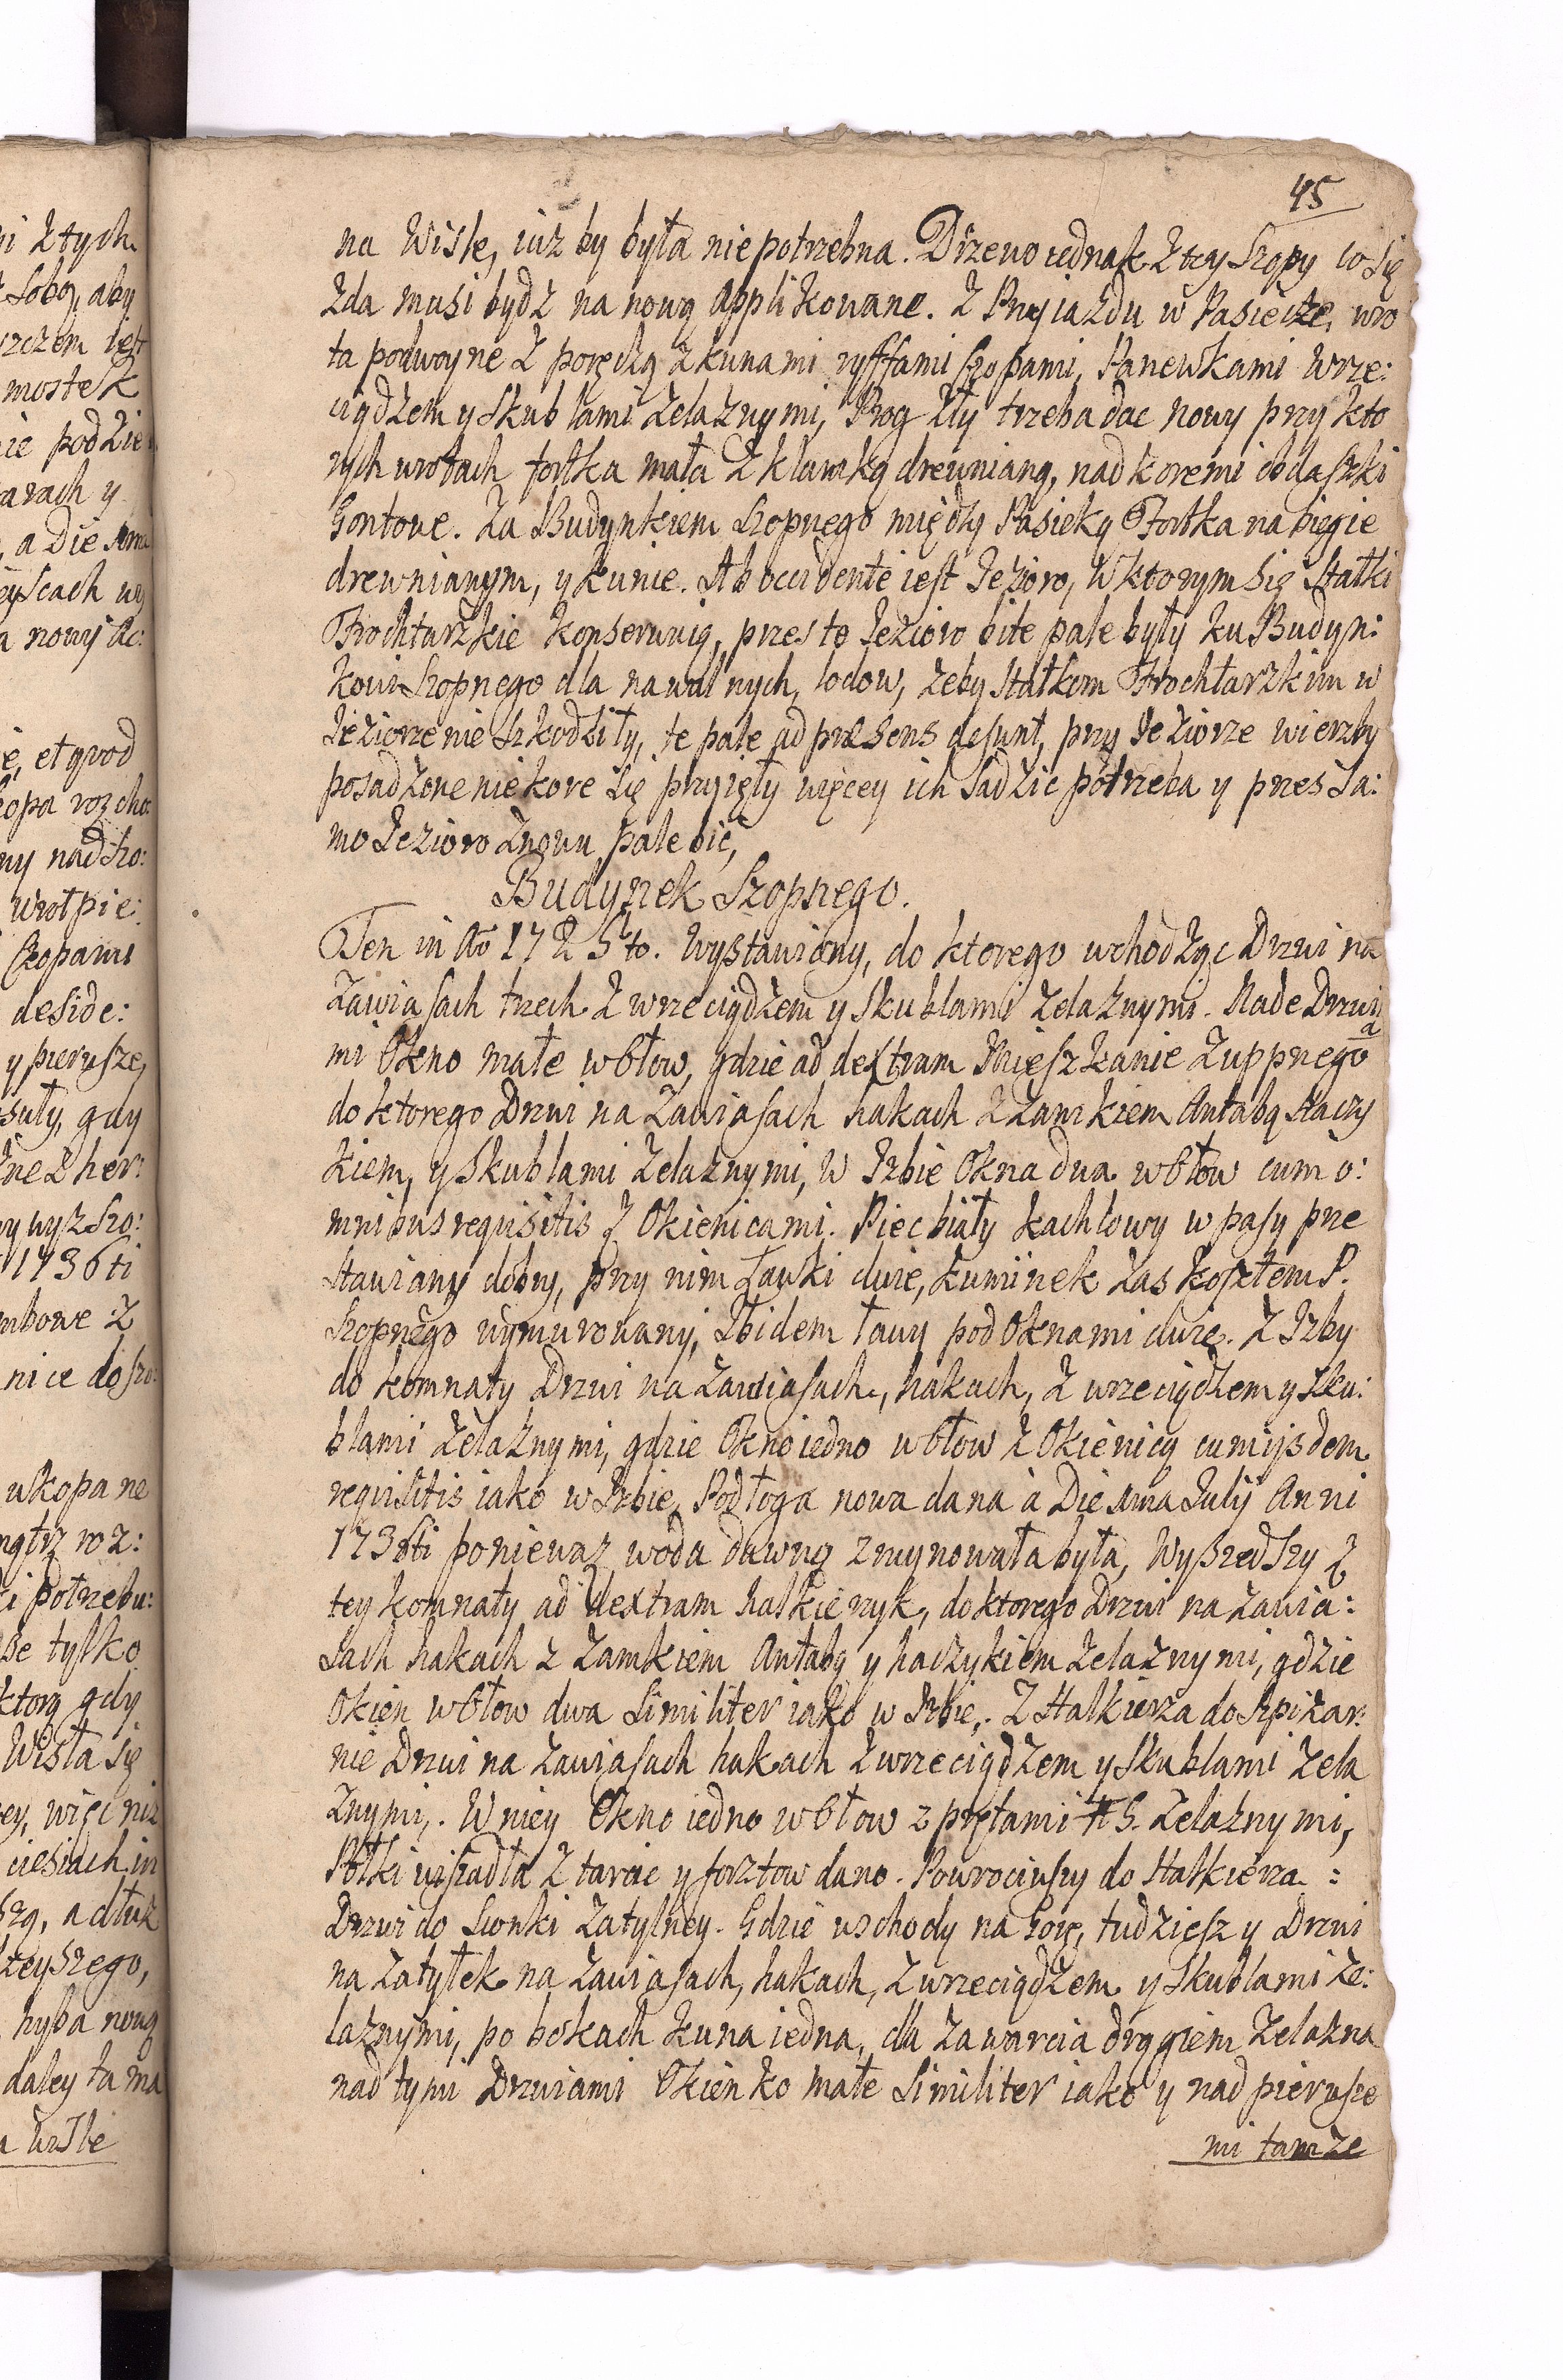 ni z tych
Sobą, aby
szczem iest
mostek
ie podzie
arach y
a Die 1ma
eyscach
a nowy
e, et quod
opa rozcho:
ny nad Szo:
wrot pie:
Szopami
deside:
y pierwsze,
suły, gdy
zne z her:
wyż Szo:
1736ti
mbowe z
nice do szo:
wkopane
ngtrz roz:
i potrzebu:
tylko
ktorą gdy
Wisła się
ey, więc niż
ciesiach in
szą, a dłuż
teyszego,
hyba nową
daley ta ma
45
na Wisłe, iuż by była nie potrzebna. Drzewo iednak z tey Szopy co się
zda musi bydz na nową applikowane. Z Przyiazdu w Pasiecze, wro
ta podwoyne z poręczą z kunami ryffami szopami, Panewkami wrze:
ciądzem y Skublami żelaznymi, Prog zły trzeba dac nowy przy kto
rych wrotach fortka mała z klamką drewnianą, nad koremi obdaszki
Gontowe. Za Budynkiem Szopnego między Pasieką Fortka na biegie
drewnianym, y kunie. Ab occidente iest Jezioro, w ktorym się Statki
Frochtarzkie konserwuią, przes to Jezioro bite pale były ku Budyn:
kowi Szopnego dla nawalnych, lodow, żeby statkom Frochtarzkim w
Jeziorze nie szkodziły, te pale ad præsens desunt, przy Jeziorze wierzby
posadzone niekore się przyięły więcey ich sadzic potrzeba y przes sa:
mo Jezioro znowu pale bić,
Budynek Szopnego.
Ten in Ao 1725to. wystawiony, do ktorego wchodząc Drzwi na
zawiasach trzech z wrzeciądzem y Skublami żelaznymi. Nade Drzwi
mi Okno małe w ołow, gdzie ad dextram Mięszkanie Zuppnego
a
do ktorego Drzwi na zawiasach hakach z zamkiem Antabą Haczy
kiem, y Skublami żelaznymi, w Izbie Okna dwa w ołow cum o:
mnibus requisitis z Okienicami. Piec biały kachlowy w pasy prze
stawiany dobry, przy nim Ławki dwie, kuminek zas kosztem P.
Szopnego wymurowany, Ibidem ławy pod Oknami dwie. Z Izby
do komnaty Drzwi na zawiasach, hakach, z wrzeciądzem y sku:
blami żelaznymi, gdzie Okno iedno w ołow z Okienicą cum ijsdem
requisitis iako w Izbie, Podłoga nowa dana à Die 1ma Julij Anni
1736ti poniewaz woda dawną zruynowała była, Wyszedszy z
tey komnaty ad dextram halkierzyk, do ktorego Drzwi na zawia:
sach hakach z zamkiem Antabą y haczykiem żelaznymi, gdzie
Okien w ołow dwa similiter iako w Izbie,. Z Halkierza do Szpiżar:
nie Drzwi na zawiasach hakach z wrzeciądzem y Skublami żela
znymi,. W niey Okno iedno w ołow z prętami # 5. żelaznymi,
Połki wiszadła z tarcic y forsztow dano. Powrociwszy do Halkierza :
Drzwi do Sionki zatylney. Gdzie wschody na Gorę, tudziesz y Drzwi
na zatyłek na zawiasach, hakach, z wrzeciądzem y Skublami że:
laznymi, po bokach kuna iedna, dla zawarcia drągiem żelazna
nad tymi Drzwiami Okienko małe similiter iako y nad pierwsze
mi tamże